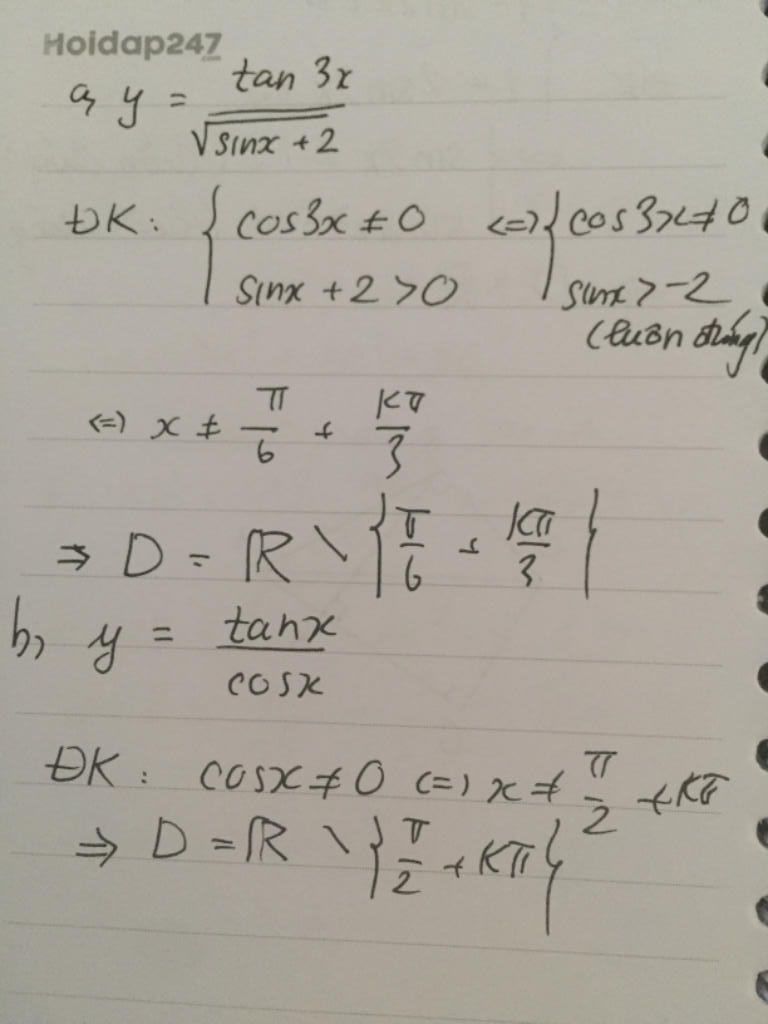 Hoidap247
a, y = tan 3x / √(sinx + 2)
ĐK: { cos3x ≠ 0 <=> { cos3x ≠ 0
sinx + 2 > 0 sinx > -2
(luôn đúng)
<=> x ≠ π/6 + kπ/3
=> D = ℝ \ {π/6 + kπ/3}
b, y = tanx / cosx
ĐK: cosx ≠ 0 <=> x ≠ π/2 + kπ
=> D = ℝ \ {π/2 + kπ}